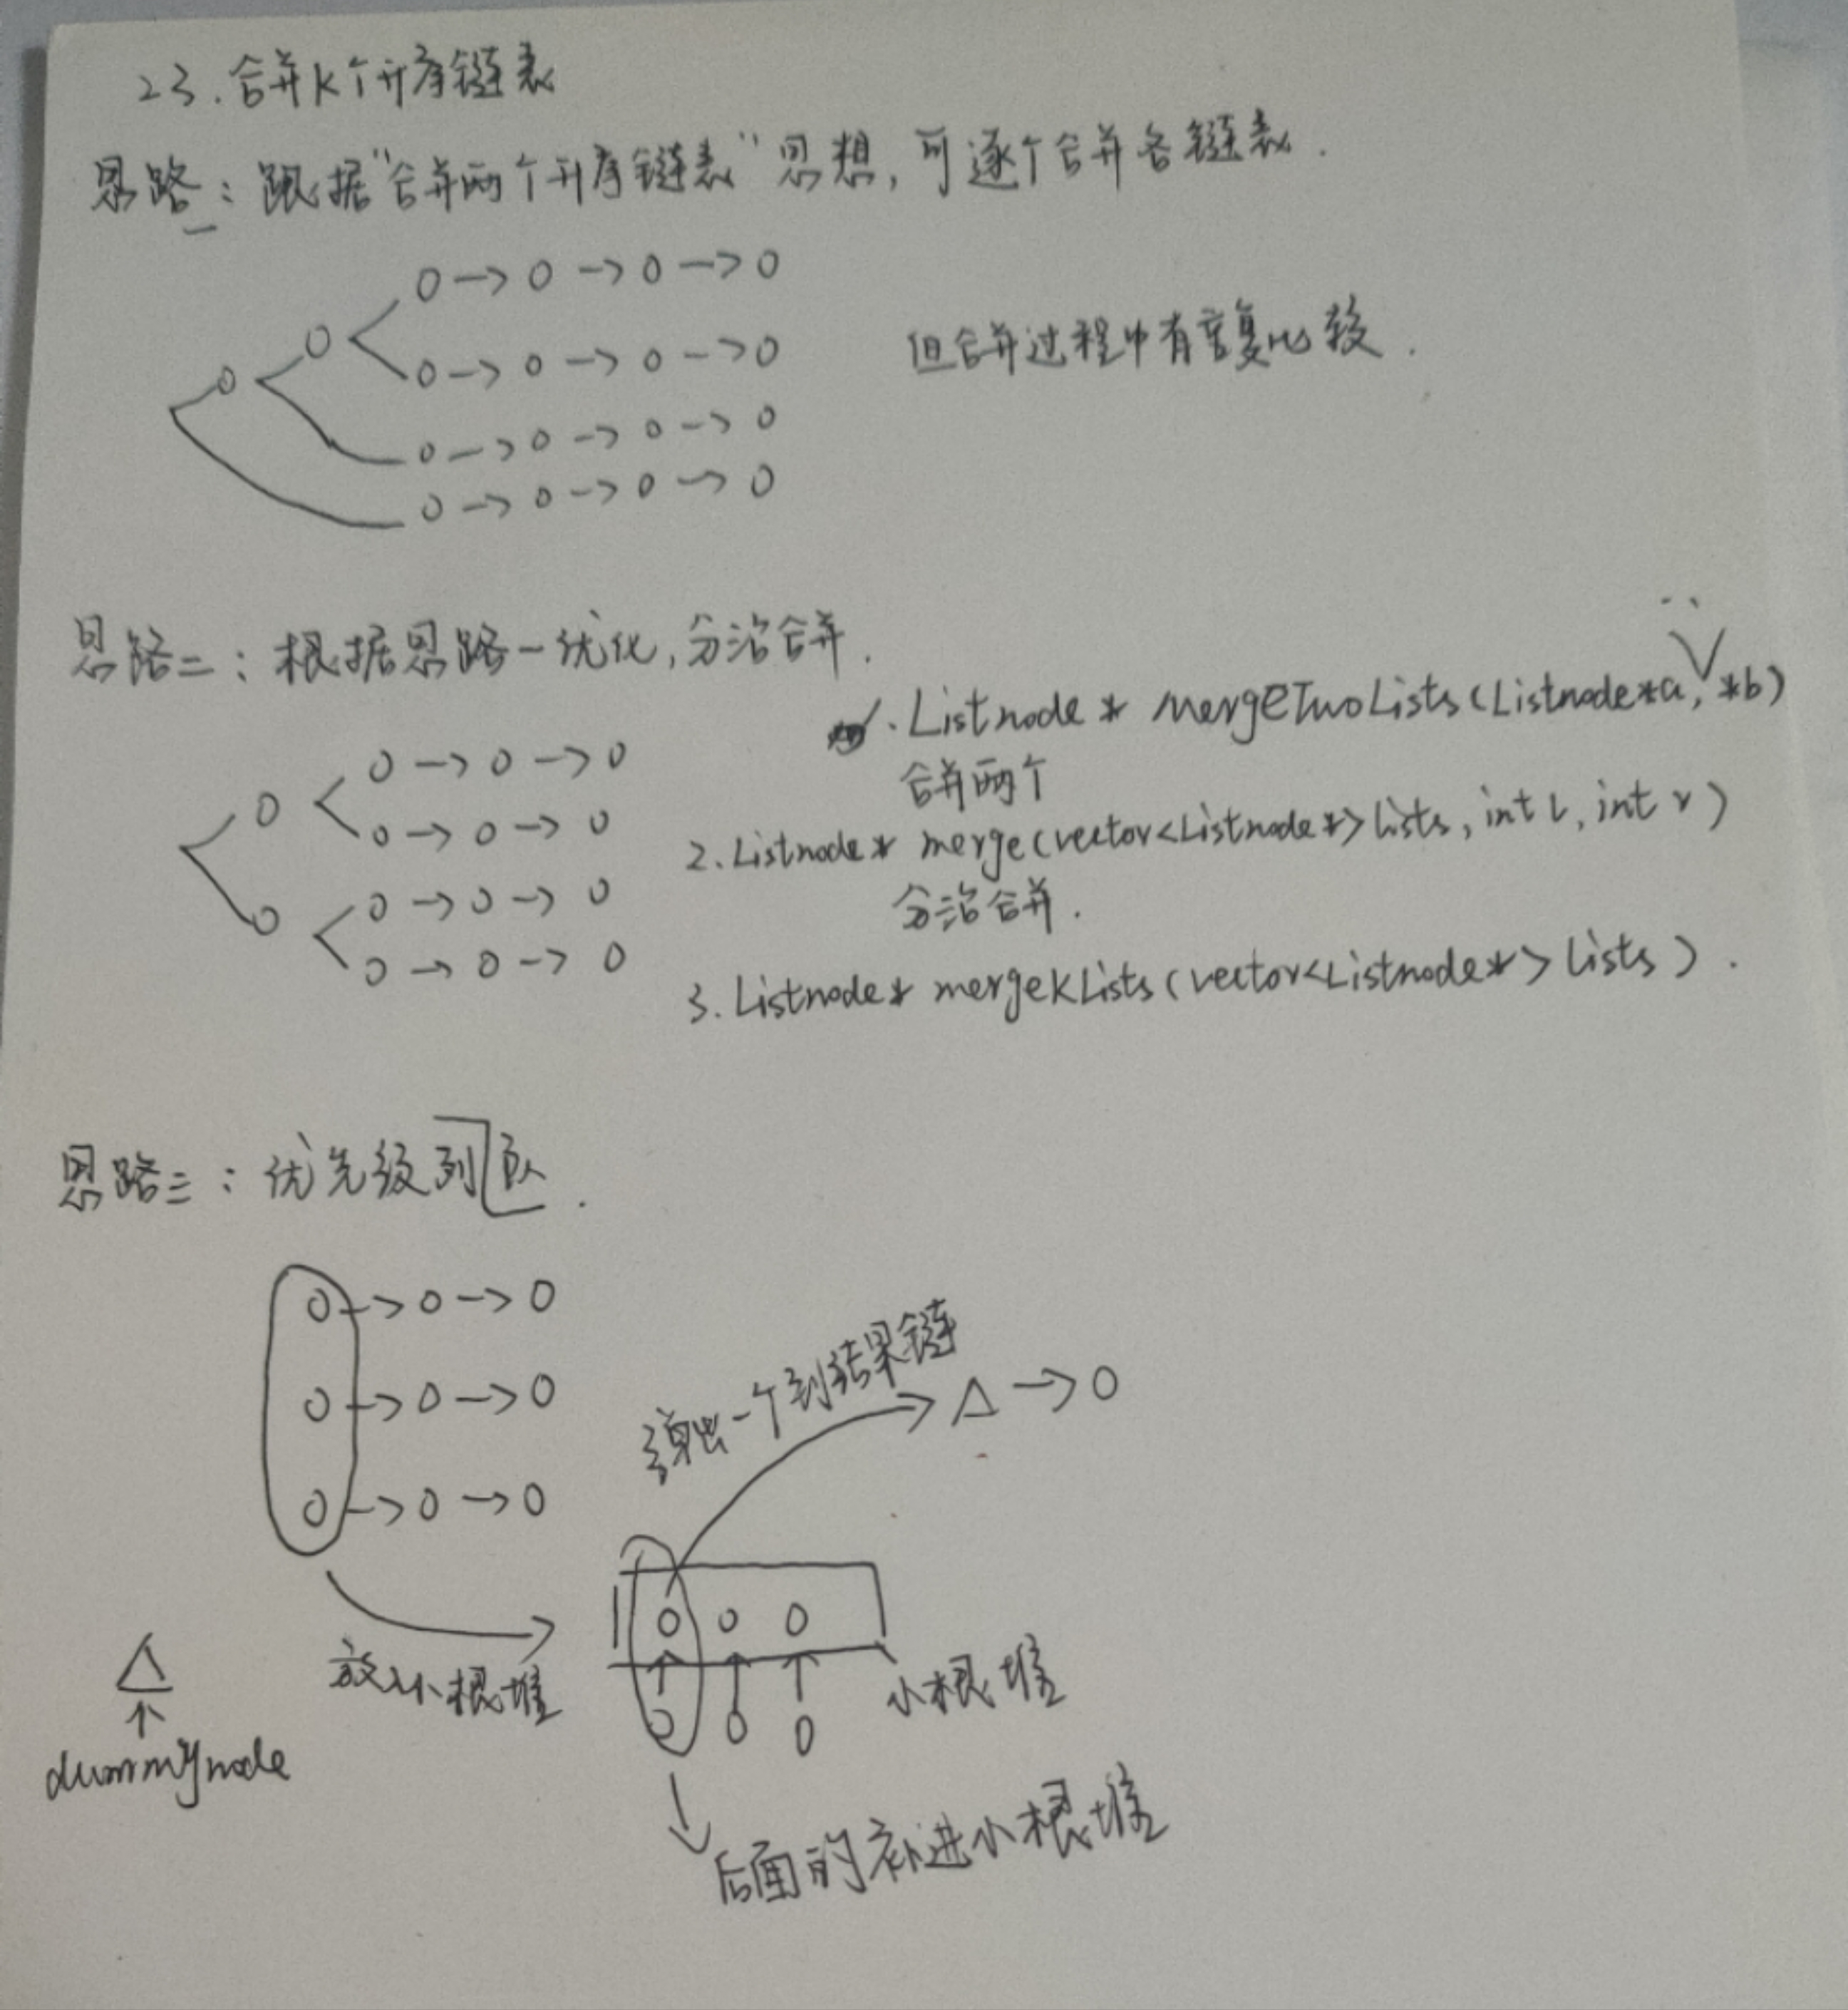 23.合并K个升序链表
思路一：跟据"合并两个升序链表"思想,可逐个合并各链表.
0->0->0->0
0
0->0->0->0
但合并过程中有重复比较.
0
0->0->0->0
0->0->0->0
思路二：根据思路一优化,分治合并.
1.Listnode* mergeTwoLists(Listnode*a,*b)
合并两个
2.Listnode* merge(vector<Listnode*>lists,int l,int r)
分治合并.
3.Listnode* mergeKLists(vector<Listnode*>lists).
0->0->0
0
0->0->0
0->0->0
0
0->0->0
思路三：优先级列队.
0->0->0
0->0->0
0->0->0
弹出一个到结果链
Δ->0
0 0 0
0 0 0
放入小根堆
小根堆
Δ
dummynode
后面的补进小根堆